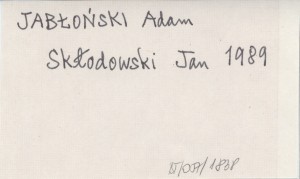 JABŁOŃSKI Adam
Skłodowski Jan 1989